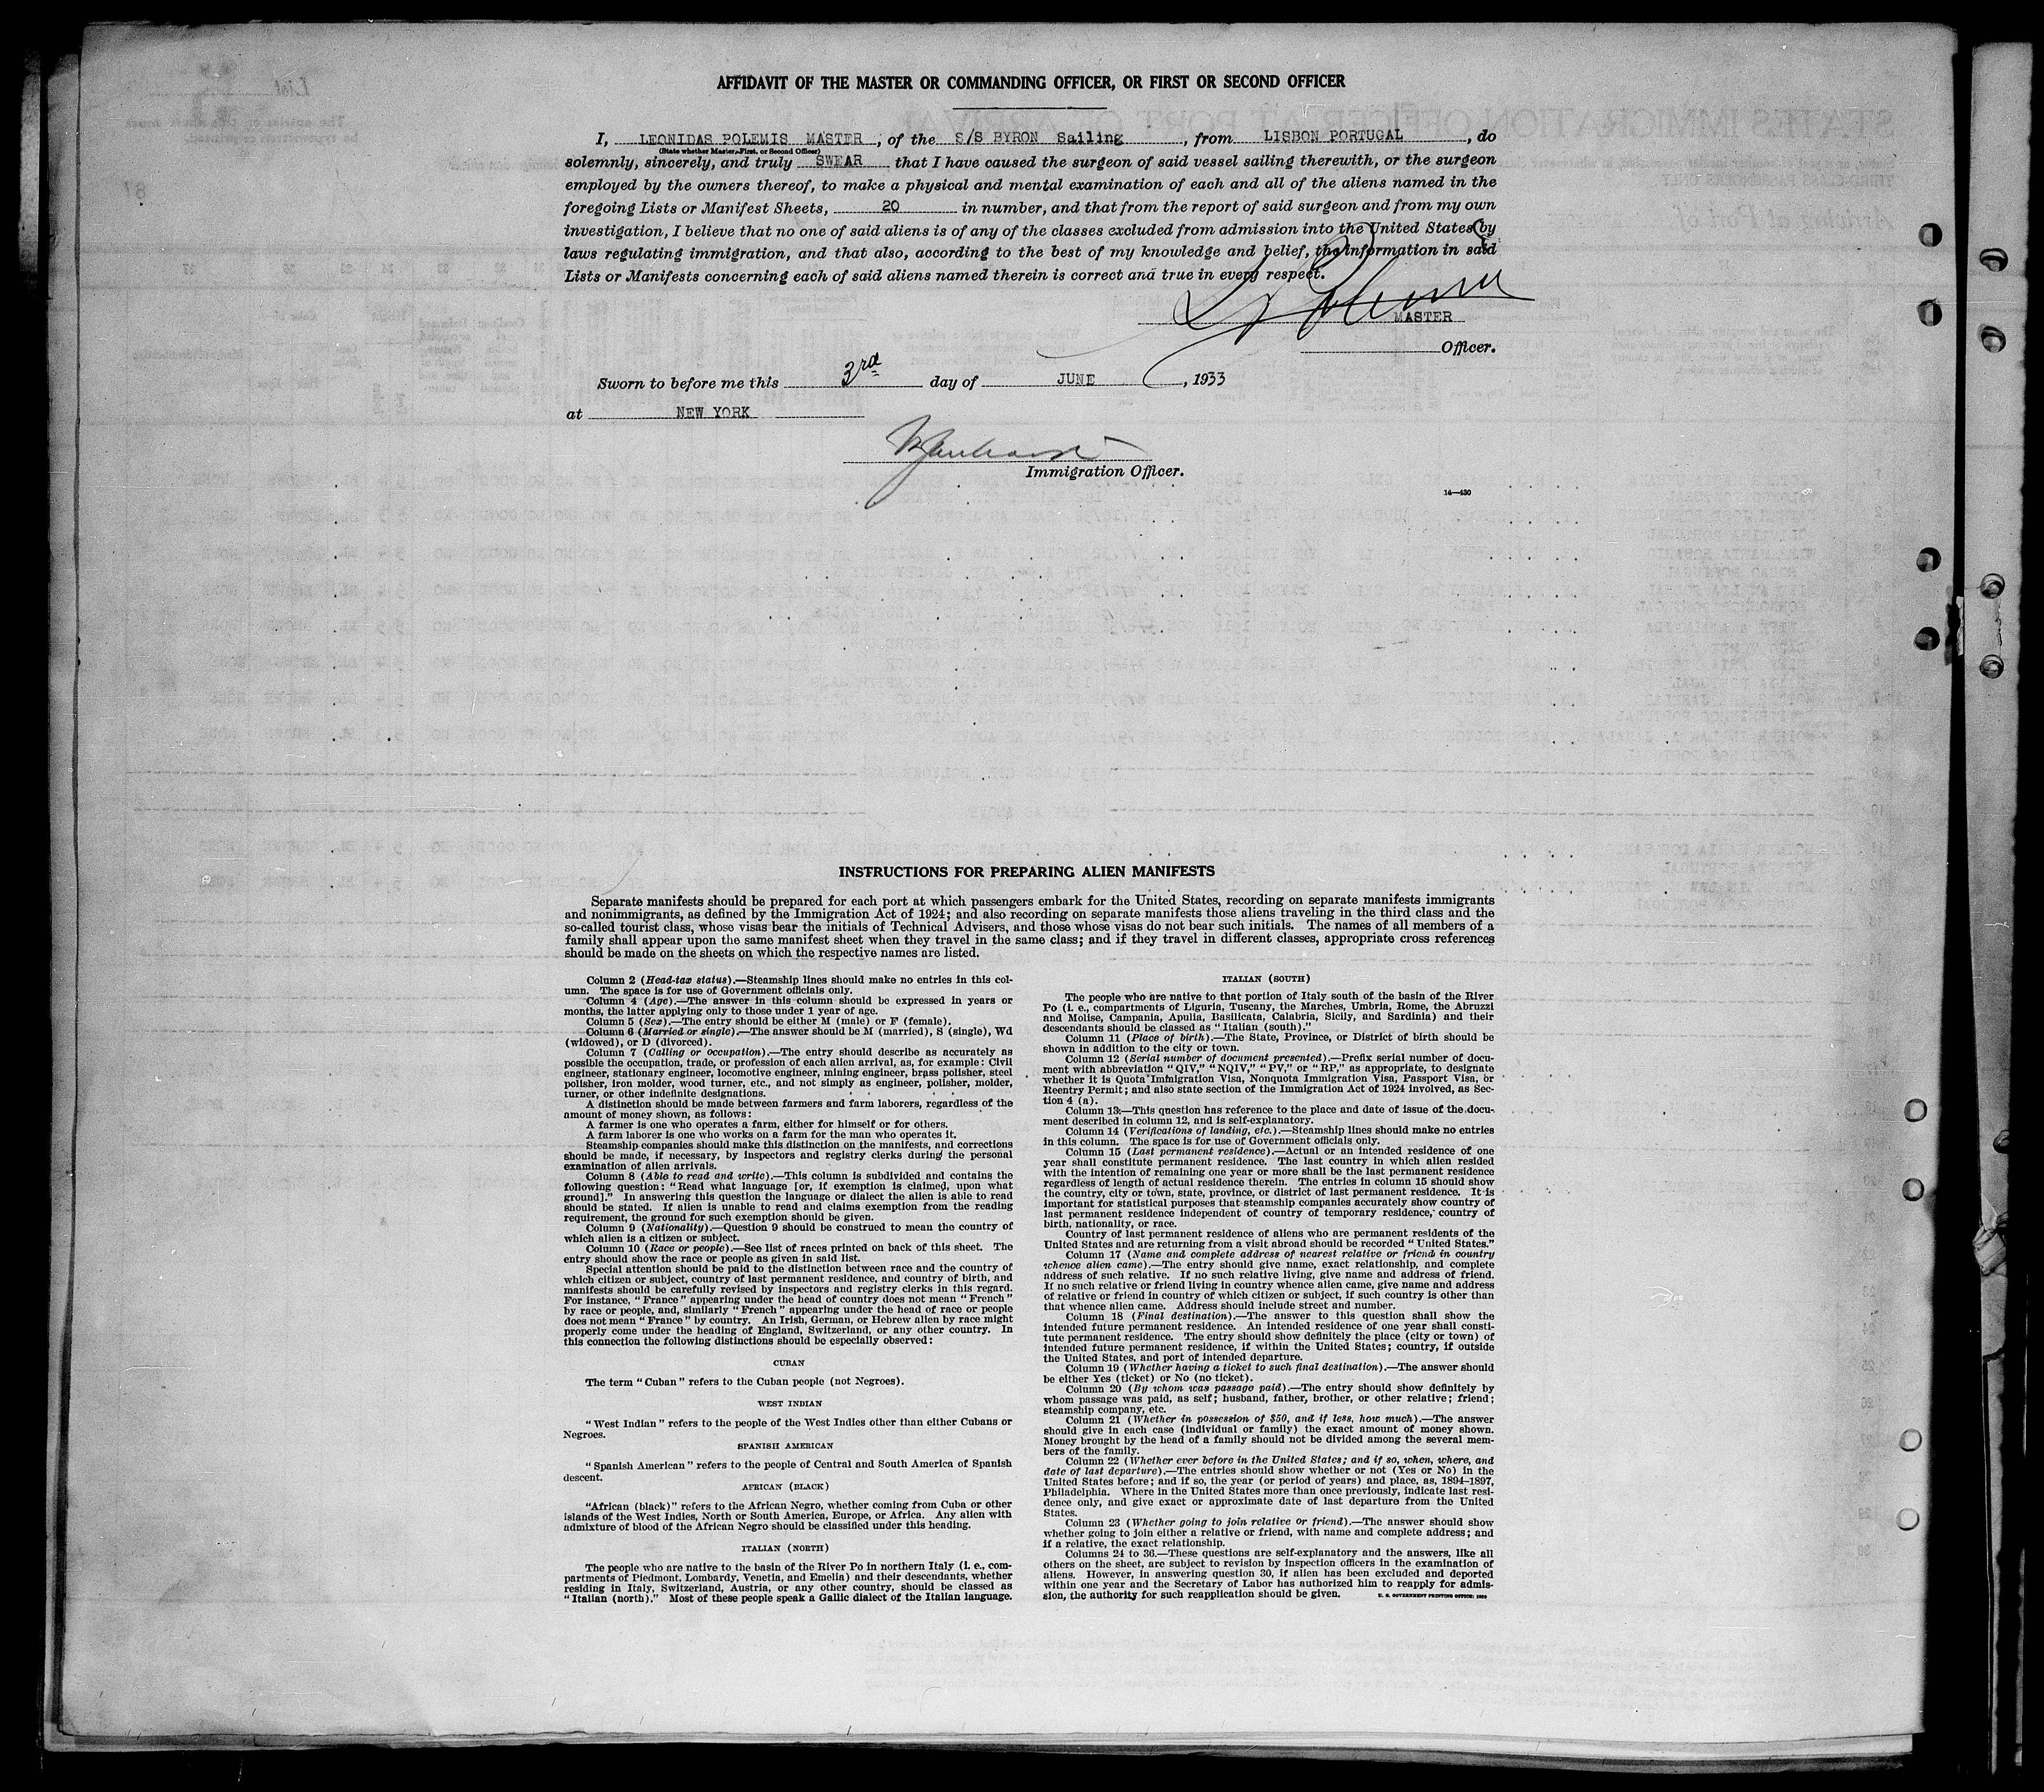 AFFIDAVIT OF THE MASTER OR COMMANDING OFFICER, OR FIRST OR SECOND OFFICER
I, LEONIDAS POLEMIS MASTER, of the S/S BYRON Sailing, from LISBON PORTUGAL, do
(State whether Master, First, or Second Officer)
solemnly, sincerely, and truly SWEAR that I have caused the surgeon of said vessel sailing therewith, or the surgeon
employed by the owners thereof, to make a physical and mental examination of each and all of the aliens named in the
foregoing Lists or Manifest Sheets, 20 in number, and that from the report of said surgeon and from my own
investigation, I believe that no one of said aliens is of any of the classes excluded from admission into the United States by
laws regulating immigration, and that also, according to the best of my knowledge and belief, the information in said
Lists or Manifests concerning each of said aliens named therein is correct and true in every respect.
MASTER
Officer.
Sworn to before me this 3rd day of JUNE, 1933
at NEW YORK
Immigration Officer.
14—430
INSTRUCTIONS FOR PREPARING ALIEN MANIFESTS
Separate manifests should be prepared for each port at which passengers embark for the United States, recording on separate manifests immigrants
and nonimmigrants, as defined by the Immigration Act of 1924; and also recording on separate manifests those aliens traveling in the third class and the
so-called tourist class, whose visas bear the initials of Technical Advisers, and those whose visas do not bear such initials. The names of all members of a
family shall appear upon the same manifest sheet when they travel in the same class; and if they travel in different classes, appropriate cross references
should be made on the sheets on which the respective names are listed.
Column 2 (Head-tax status).—Steamship lines should make no entries in this col-
umn. The space is for use of Government officials only.
Column 4 (Age).—The answer in this column should be expressed in years or
months, the latter applying only to those under 1 year of age.
Column 5 (Sex).—The entry should be either M (male) or F (female).
Column 6 (Married or single).—The answer should be M (married), S (single), Wd
(widowed), or D (divorced).
Column 7 (Calling or occupation).—The entry should describe as accurately as
possible the occupation, trade, or profession of each alien arrival, as, for example: Civil
engineer, stationary engineer, locomotive engineer, mining engineer, brass polisher, steel
polisher, iron molder, wood turner, etc., and not simply as engineer, polisher, molder,
turner, or other indefinite designations.
A distinction should be made between farmers and farm laborers, regardless of the
amount of money shown, as follows:
A farmer is one who operates a farm, either for himself or for others.
A farm laborer is one who works on a farm for the man who operates it.
Steamship companies should make this distinction on the manifests, and corrections
should be made, if necessary, by inspectors and registry clerks during the personal
examination of alien arrivals.
Column 8 (Able to read and write).—This column is subdivided and contains the
following question: "Read what language [or, if exemption is claimed, upon what
ground]." In answering this question the language or dialect the alien is able to read
should be stated. If alien is unable to read and claims exemption from the reading
requirement, the ground for such exemption should be given.
Column 9 (Nationality).—Question 9 should be construed to mean the country of
which alien is a citizen or subject.
Column 10 (Race or people).—See list of races printed on back of this sheet. The
entry should show the race or people as given in said list.
Special attention should be paid to the distinction between race and the country of
which citizen or subject, country of last permanent residence, and country of birth, and
manifests should be carefully revised by inspectors and registry clerks in this regard.
For instance, "France" appearing under the head of country does not mean "French"
by race or people, and, similarly "French" appearing under the head of race or people
does not mean "France" by country. An Irish, German, or Hebrew alien by race might
properly come under the heading of England, Switzerland, or any other country. In
this connection the following distinctions should be especially observed:
CUBAN
The term "Cuban" refers to the Cuban people (not Negroes).
WEST INDIAN
"West Indian" refers to the people of the West Indies other than either Cubans or
Negroes.
SPANISH AMERICAN
"Spanish American" refers to the people of Central and South America of Spanish
descent.
AFRICAN (BLACK)
"African (black)" refers to the African Negro, whether coming from Cuba or other
islands of the West Indies, North or South America, Europe, or Africa. Any alien with
admixture of blood of the African Negro should be classified under this heading.
ITALIAN (NORTH)
The people who are native to the basin of the River Po in northern Italy (i. e., com-
partments of Piedmont, Lombardy, Venetia, and Emelia) and their descendants, whether
residing in Italy, Switzerland, Austria, or any other country, should be classed as
"Italian (north)." Most of these people speak a Gallic dialect of the Italian language.
ITALIAN (SOUTH)
The people who are native to that portion of Italy south of the basin of the River
Po (i. e., compartments of Liguria, Tuscany, the Marches, Umbria, Rome, the Abruzzi
and Molise, Campania, Apulia, Basilicata, Calabria, Sicily, and Sardinia) and their
descendants should be classed as "Italian (south)."
Column 11 (Place of birth).—The State, Province, or District of birth should be
shown in addition to the city or town.
Column 12 (Serial number of document presented).—Prefix serial number of docu-
ment with abbreviation "QIV," "NQIV," "PV," or "RP," as appropriate, to designate
whether it is Quota Immigration Visa, Nonquota Immigration Visa, Passport Visa, or
Reentry Permit; and also state section of the Immigration Act of 1924 involved, as Sec-
tion 4 (a).
Column 13.—This question has reference to the place and date of issue of the docu-
ment described in column 12, and is self-explanatory.
Column 14 (Verifications of landing, etc.).—Steamship lines should make no entries
in this column. The space is for use of Government officials only.
Column 15 (Last permanent residence).—Actual or an intended residence of one
year shall constitute permanent residence. The last country in which alien resided
with the intention of remaining one year or more shall be the last permanent residence
regardless of length of actual residence therein. The entries in column 15 should show
the country, city or town, state, province, or district of last permanent residence. It is
important for statistical purposes that steamship companies accurately show country of
last permanent residence independent of country of temporary residence, country of
birth, nationality, or race.
Country of last permanent residence of aliens who are permanent residents of the
United States and are returning from a visit abroad should be recorded "United States."
Column 17 (Name and complete address of nearest relative or friend in country
whence alien came).—The entry should give name, exact relationship, and complete
address of such relative. If no such relative living, give name and address of friend.
If no such relative or friend living in country whence alien came, give name and address
of relative or friend in country of which citizen or subject, if such country is other than
that whence alien came. Address should include street and number.
Column 18 (Final destination).—The answer to this question shall show the
intended future permanent residence. An intended residence of one year shall consti-
tute permanent residence. The entry should show definitely the place (city or town) of
intended future permanent residence, if within the United States; country, if outside
the United States, and port of intended departure.
Column 19 (Whether having a ticket to such final destination).—The answer should
be either Yes (ticket) or No (no ticket).
Column 20 (By whom was passage paid).—The entry should show definitely by
whom passage was paid, as self; husband, father, brother, or other relative; friend;
steamship company, etc.
Column 21 (Whether in possession of $50, and if less, how much).—The answer
should give in each case (individual or family) the exact amount of money shown.
Money brought by the head of a family should not be divided among the several mem-
bers of the family.
Column 22 (Whether ever before in the United States; and if so, when, where, and
date of last departure).—The entries should show whether or not (Yes or No) in the
United States before; and if so, the year (or period of years) and place, as, 1894–1897,
Philadelphia. Where in the United States more than once previously, indicate last resi-
dence only, and give exact or approximate date of last departure from the United
States.
Column 23 (Whether going to join relative or friend).—The answer should show
whether going to join either a relative or friend, with name and complete address; and
if a relative, the exact relationship.
Columns 24 to 36.—These questions are self-explanatory and the answers, like all
others on the sheet, are subject to revision by inspection officers in the examination of
aliens. However, in answering question 30, if alien has been excluded and deported
within one year and the Secretary of Labor has authorized him to reapply for admis-
sion, the authority for such reapplication should be given.
U. S. GOVERNMENT PRINTING OFFICE